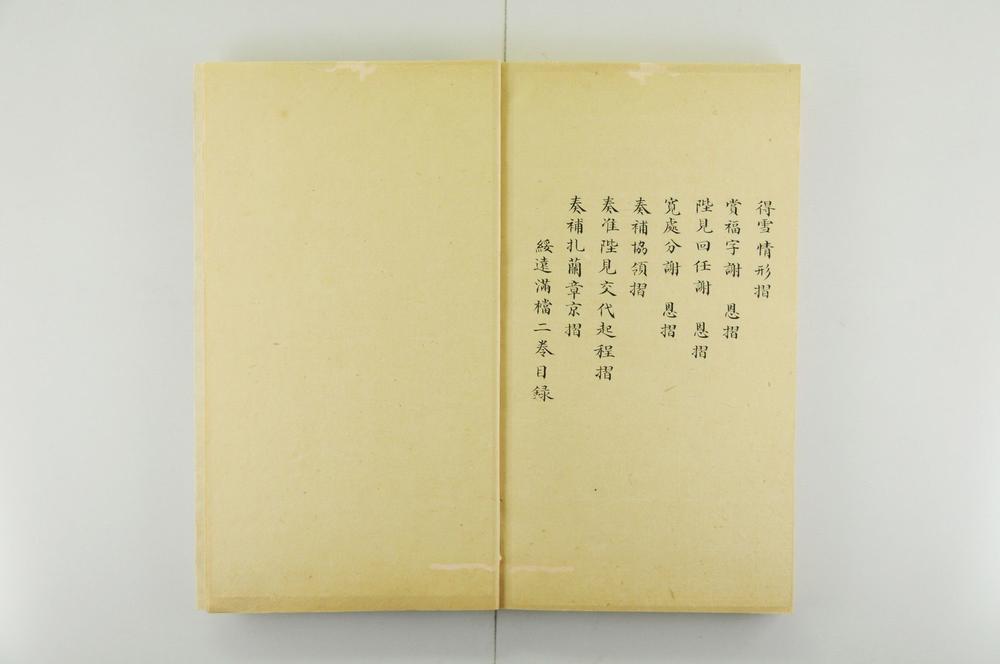 得雪情形摺
賞福字謝　恩摺
陛見回任謝　恩摺
寬處分謝　恩摺
奏補協領摺
奏准陛見交代起程摺
奏補扎蘭章京摺
綏遠滿檔二卷目録